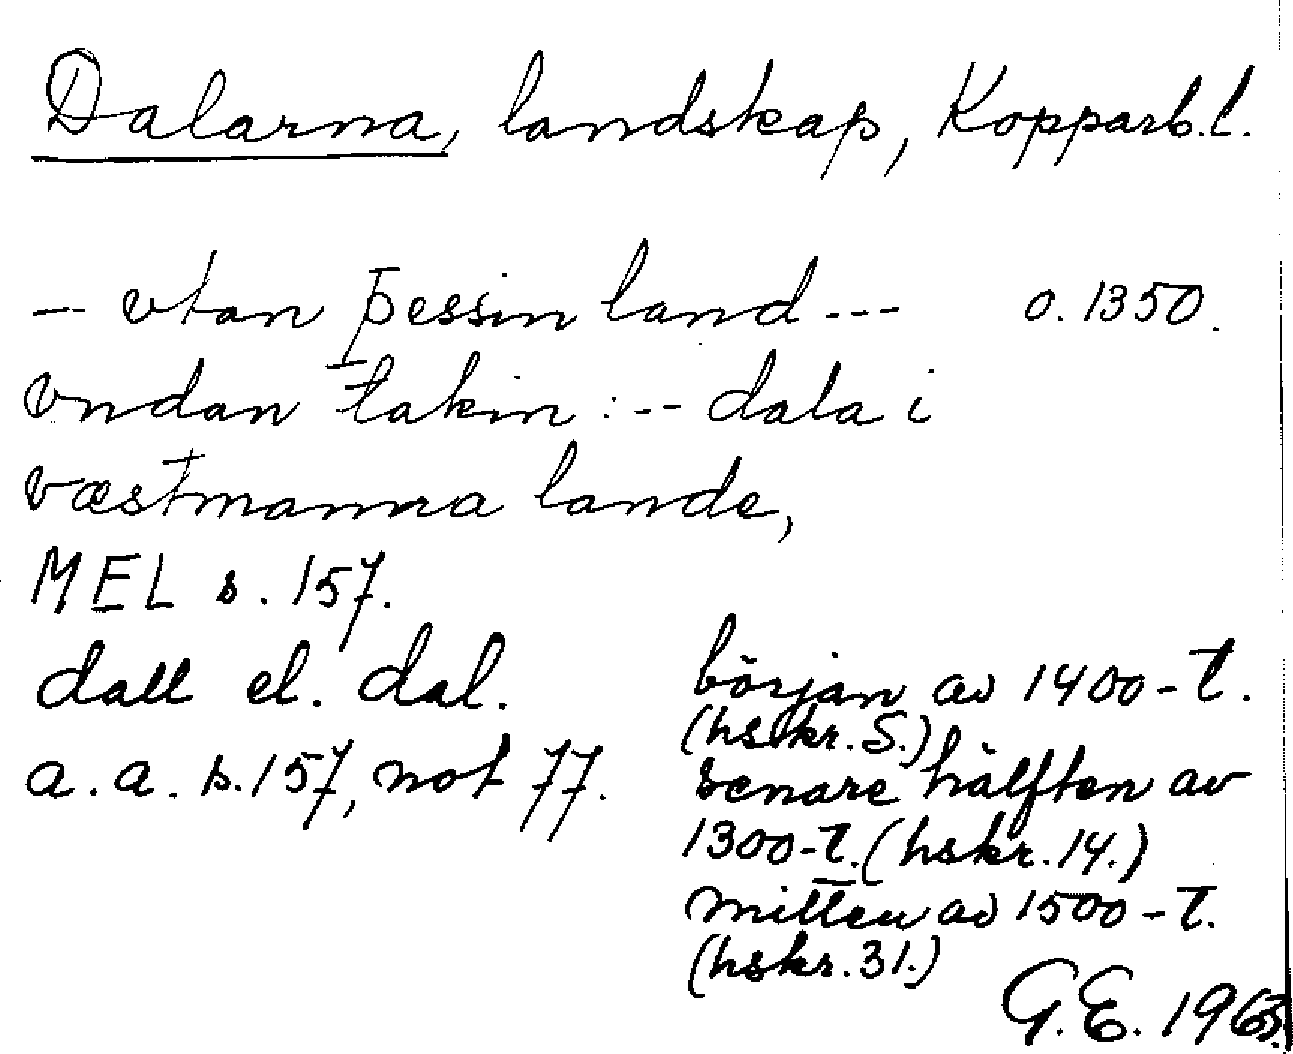 Dalarna, landskap, Kopparb.l.
-- vtan þessin land --- o. 1350.
vndan takin : -- dala i
væstmanna lande,
MEL s. 157.
dall el. dal.
a. a. s. 157, not 77.
början av 1400-t.
(hskr. S.)
senare hälften av
1300-t. (hskr. 14.)
mitten av 1500-t.
(hskr. 31.)
G.E. 1963.